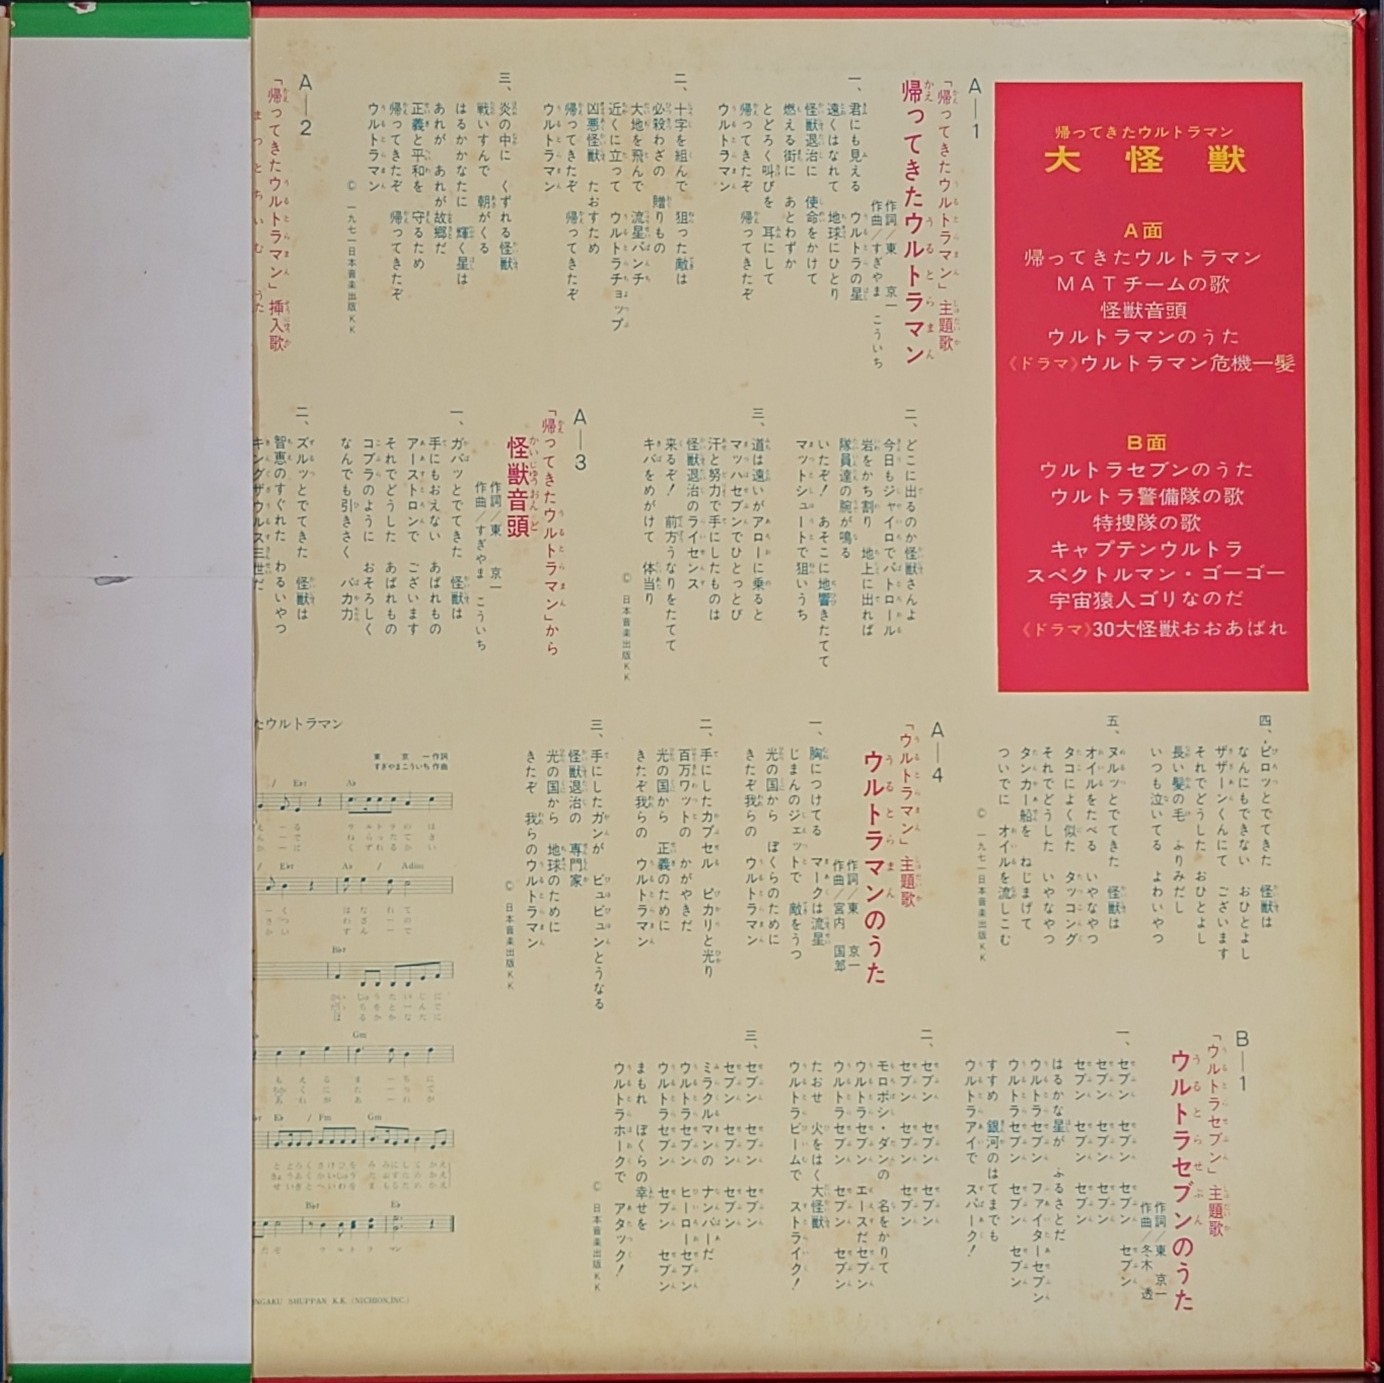 帰ってきたウルトラマン
大怪獣
A面
帰ってきたウルトラマン
MATチームの歌
怪獣音頭
ウルトラマンのうた
《ドラマ》ウルトラマン危機一髪
B面
ウルトラセブンのうた
ウルトラ警備隊の歌
特捜隊の歌
キャプテンウルトラ
スペクトルマン・ゴーゴー
宇宙猿人ゴリなのだ
《ドラマ》30大怪獣おおあばれ
A—1
「帰ってきたウルトラマン」主題歌
帰ってきたウルトラマン
作詞/東 京一
作曲/すぎやま こういち
一、君にも見える ウルトラの星
遠くはなれて 地球にひとり
怪獣退治に 使命をかけて
燃える街に あとわずか
とどろく叫びを 耳にして
帰ってきたぞ 帰ってきたぞ
ウルトラマン
二、十字を組んで 狙った敵は
必殺わざの 贈りもの
大地を飛んで 流星パンチ
近くに立って ウルトラチョップ
凶悪怪獣 たおすため
帰ってきたぞ 帰ってきたぞ
ウルトラマン
三、炎の中に くずれる怪獣
戦いすんで 朝がくる
はるかかなたに 輝く星は
あれが あれが故郷だ
正義と平和を 守るため
帰ってきたぞ 帰ってきたぞ
ウルトラマン
© 一九七一日本音楽出版KK
A—2
「帰ってきたウルトラマン」挿入歌
二、どこに出るのか怪獣さんよ
今日もジャイロでパトロール
岩をかち割り 地上に出れば
隊員達の腕が鳴る
いたぞ! あそこに地響きたてて
マットシュートで狙いうち
三、道は遠いがアローに乗ると
マッハセブンでひとっとび
汗と努力で手にしたものは
怪獣退治のライセンス
来るぞ! 前方うなりをたてて
キバをめがけて 体当り
© 日本音楽出版KK
A—3
「帰ってきたウルトラマン」から
怪獣音頭
作詞/東 京一
作曲/すぎやま こういち
一、ガバッとでてきた 怪獣は
手にもおえない あばれもの
アーストロンで ございます
それでどうした あばれもの
コブラのように おそろしく
なんでも引きさく バカ力
二、ズルッとでてきた 怪獣は
智恵のすぐれた わるいやつ
キングザウルス三世だ
四、ピロッとでてきた 怪獣は
なんにもできない おひとよし
ザザーンくんにて ございます
それでどうした おひとよし
長い髪の毛 ふりみだし
いつも泣いてる よわいやつ
五、ヌルッとでてきた 怪獣は
オイルをたべる いやなやつ
タコによく似た タッコング
それでどうした いやなやつ
タンカー船を ねじまげて
ついでに オイルを流しこむ
© 一九七一日本音楽出版KK
A—4
「ウルトラマン」主題歌
ウルトラマンのうた
作詞/東 京一
作曲/宮内 国郎
一、胸につけてる マークは流星
じまんのジェットで 敵をうつ
光の国から ぼくらのために
きたぞ我らの ウルトラマン
二、手にしたカプセル ピカリと光り
百万ワットの かがやきだ
光の国から 正義のために
きたぞ我らの ウルトラマン
三、手にしたガンが ビュビュンとうなる
怪獣退治の 専門家
光の国から 地球のために
きたぞ 我らのウルトラマン
© 日本音楽出版KK
たウルトラマン
東 京一 作詞
すぎやまこういち 作曲
B—1
「ウルトラセブン」主題歌
ウルトラセブンのうた
作詞/東 京一
作曲/冬木 透
一、セブン セブン セブン セブン
セブン セブン セブン
セブン セブン セブン
はるかな星が ふるさとだ
ウルトラセブン ファイターセブン
ウルトラセブン セブン セブン
すすめ 銀河のはてまでも
ウルトラアイで スパーク!
二、セブン セブン セブン
セブン セブン セブン
モロボシ・ダンの 名をかりて
ウルトラセブン エースだセブン
ウルトラセブン セブン セブン
たおせ 火をはく大怪獣
ウルトラビームで ストライク!
三、セブン セブン セブン
セブン セブン セブン
ミラクルマンの ナンバーだ
ウルトラセブン ヒーローセブン
ウルトラセブン セブン セブン
まもれ ぼくらの幸せを
ウルトラホークで アタック!
© 日本音楽出版KK
NGAKU SHUPPAN K.K. (NICHION,INC.)